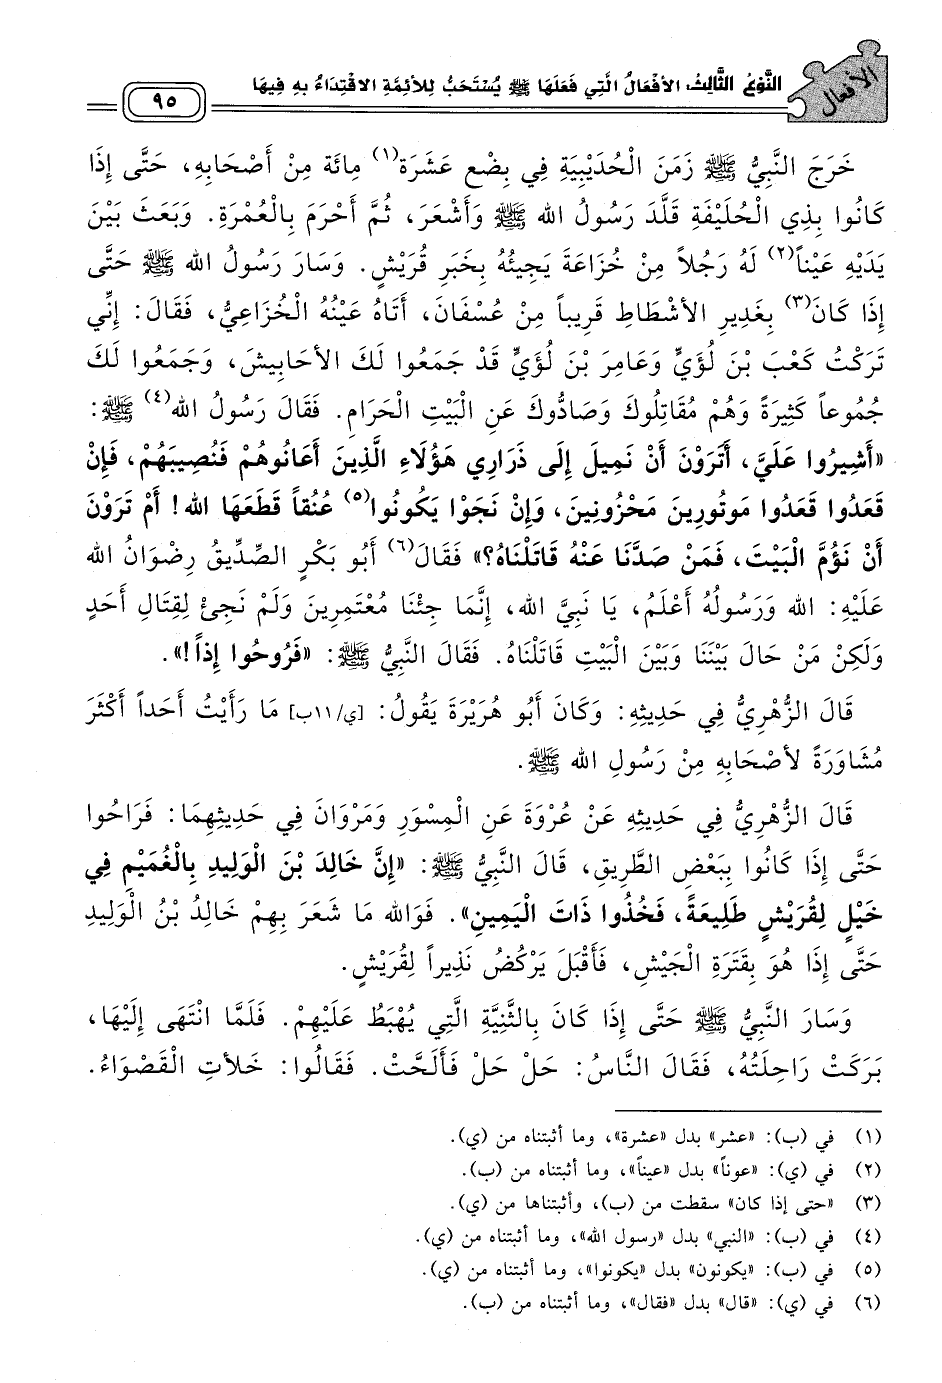 الأفعال
النَّوْعُ الثَّالِثُ: الأَفْعَالُ الَّتِي فَعَلَهَا ﷺ يُسْتَحَبُّ لِلأَئِمَّةِ الاقْتِدَاءُ بِهِ فِيهَا
٩٥
خَرَجَ النَّبِيُّ ﷺ زَمَنَ الْحُدَيْبِيَةِ فِي بِضْعِ عَشَرَةَ(١) مِائَة مِنْ أَصْحَابِهِ، حَتَّى إِذَا
كَانُوا بِذِي الْحُلَيْفَةِ قَلَّدَ رَسُولُ الله ﷺ وَأَشْعَرَ، ثُمَّ أَحْرَمَ بِالْعُمْرَةِ. وَبَعَثَ بَيْنَ
يَدَيْهِ عَيْناً(٢) لَهُ رَجُلاً مِنْ خُزَاعَةَ يَجِيئُهُ بِخَبَرِ قُرَيْشٍ. وَسَارَ رَسُولُ الله ﷺ حَتَّى
إِذَا كَانَ(٣) بِغَدِيرِ الأَشْطَاطِ قَرِيباً مِنْ عُسْفَانَ، أَتَاهُ عَيْنُهُ الْخُزَاعِيُّ، فَقَالَ: إِنِّي
تَرَكْتُ كَعْبَ بْنَ لُؤَيٍّ وَعَامِرَ بْنَ لُؤَيٍّ قَدْ جَمَعُوا لَكَ الأَحَابِيشَ، وَجَمَعُوا لَكَ
جُمُوعاً كَثِيرَةً وَهُمْ مُقَاتِلُوكَ وَصَادُّوكَ عَنِ الْبَيْتِ الْحَرَامِ. فَقَالَ رَسُولُ الله(٤) ﷺ:
«أَشِيرُوا عَلَيَّ، أَتَرَوْنَ أَنْ نَمِيلَ إِلَى ذَرَارِي هَؤُلَاءِ الَّذِينَ أَعَانُوهُمْ فَنُصِيبَهُمْ، فَإِنْ
قَعَدُوا قَعَدُوا مَوتُورِينَ مَحْزُونِينَ، وَإِنْ نَجَوْا يَكُونُوا(٥) عُنُقاً قَطَعَهَا الله! أَمْ تَرَوْنَ
أَنْ نَؤُمَّ الْبَيْتَ، فَمَنْ صَدَّنَا عَنْهُ قَاتَلْنَاهُ؟» فَقَالَ(٦) أَبُو بَكْرٍ الصِّدِّيقُ رِضْوَانُ الله
عَلَيْهِ: الله وَرَسُولُهُ أَعْلَمُ، يَا نَبِيَّ الله، إِنَّمَا جِئْنَا مُعْتَمِرِينَ وَلَمْ نَجِئْ لِقِتَالِ أَحَدٍ
وَلَكِنْ مَنْ حَالَ بَيْنَنَا وَبَيْنَ الْبَيْتِ قَاتَلْنَاهُ. فَقَالَ النَّبِيُّ ﷺ: «فَرُوحُوا إِذاً!».
قَالَ الزُّهْرِيُّ فِي حَدِيثِهِ: وَكَانَ أَبُو هُرَيْرَةَ يَقُولُ: [ي/١١ب] مَا رَأَيْتُ أَحَداً أَكْثَرَ
مُشَاوَرَةً لأَصْحَابِهِ مِنْ رَسُولِ الله ﷺ.
قَالَ الزُّهْرِيُّ فِي حَدِيثِهِ عَنْ عُرْوَةَ عَنِ الْمِسْوَرِ وَمَرْوَانَ فِي حَدِيثِهِمَا: فَرَاحُوا
حَتَّى إِذَا كَانُوا بِبَعْضِ الطَّرِيقِ، قَالَ النَّبِيُّ ﷺ: «إِنَّ خَالِدَ بْنَ الْوَلِيدِ بِالْغُمَيْمِ فِي
خَيْلٍ لِقُرَيْشٍ طَلِيعَةً، فَخُذُوا ذَاتَ الْيَمِينِ». فَوَالله مَا شَعَرَ بِهِمْ خَالِدُ بْنُ الْوَلِيدِ
حَتَّى إِذَا هُوَ بِقَتَرَةِ الْجَيْشِ، فَأَقْبَلَ يَرْكُضُ نَذِيراً لِقُرَيْشٍ.
وَسَارَ النَّبِيُّ ﷺ حَتَّى إِذَا كَانَ بِالثَّنِيَّةِ الَّتِي يُهْبَطُ عَلَيْهِمْ. فَلَمَّا انْتَهَى إِلَيْهَا،
بَرَكَتْ رَاحِلَتُهُ، فَقَالَ النَّاسُ: حَلْ حَلْ فَأَلَحَّتْ. فَقَالُوا: خَلأَتِ الْقَصْوَاءُ.
(١) في (ب): «عشر» بدل «عشرة»، وما أثبتناه من (ي).
(٢) في (ي): «عوناً» بدل «عيناً»، وما أثبتناه من (ب).
(٣) «حتى إذا كان» سقطت من (ب)، وأثبتناها من (ي).
(٤) في (ب): «النبي» بدل «رسول الله»، وما أثبتناه من (ي).
(٥) في (ب): «يكونون» بدل «يكونوا»، وما أثبتناه من (ي).
(٦) في (ي): «قال» بدل «فقال»، وما أثبتناه من (ب).